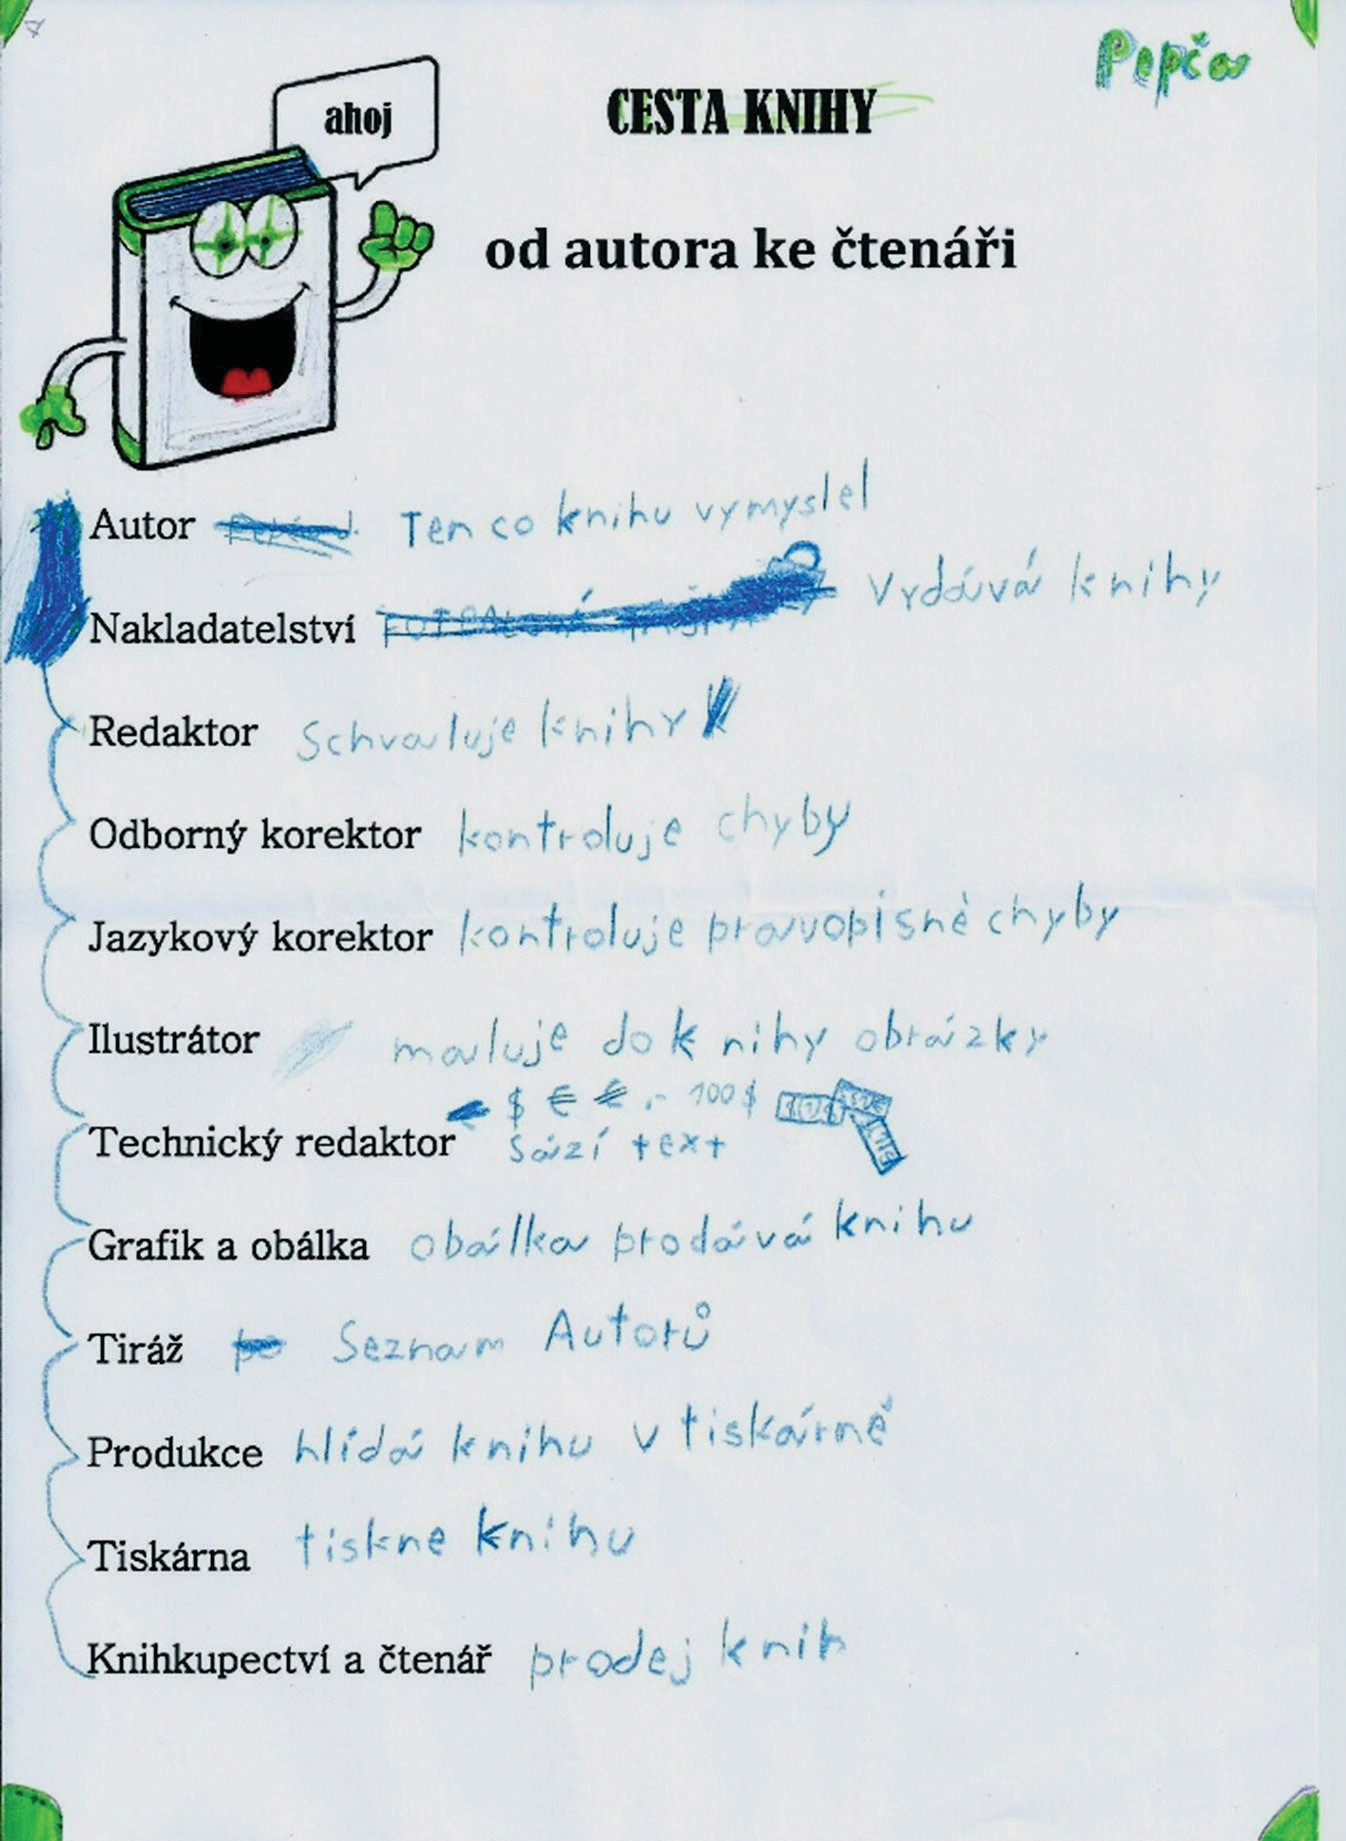 Pepča
ahoj
CESTA KNIHY
od autora ke čtenáři
Autor Ten co knihu vymyslel
Nakladatelství Vydává knihy
Redaktor Schvaluje knihy
Odborný korektor kontroluje chyby
Jazykový korektor kontroluje pravopisné chyby
Ilustrátor maluje do knihy obrázky
$ € € .- 100$
Technický redaktor Sází text
Grafik a obálka obálka prodává knihu
Tiráž Seznam Autorů
Produkce hlídá knihu v tiskárně
Tiskárna tiskne knihu
Knihkupectví a čtenář prodej knih